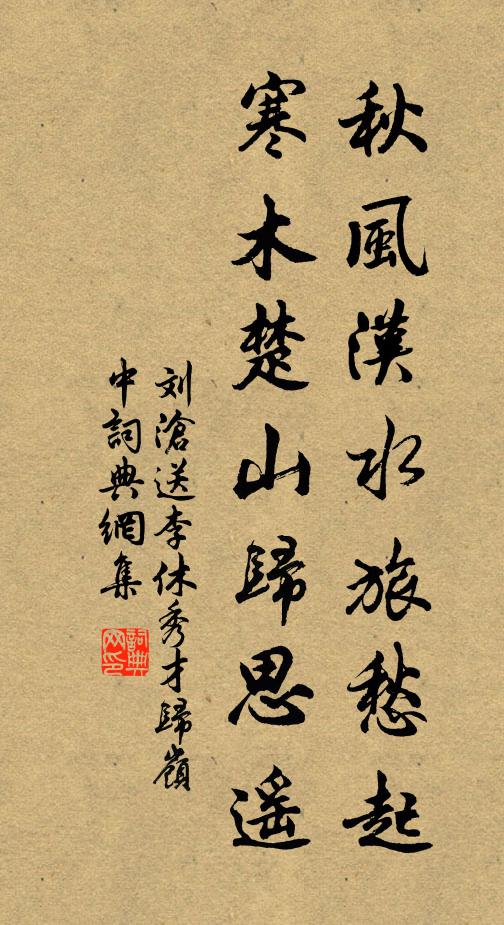 秋風漢水旅愁起
寒木楚山歸思遥
刘滄送李休秀才歸嶺
中詞典網集
詞典网印